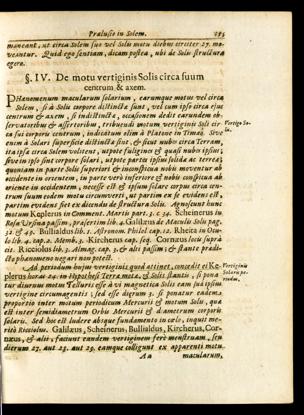 Prælusio in Solem.
moveant, ut circa Solem sive vel Solis motu diebus circiter 27. moveantur. Quid ego sentiam, dicam postea, ubi de Solis structura egero.
§. IV. De motu vertiginis Solis circa suum
centrum & axem.
PHænomenum macularum solarium, earumque motus vel circa
Solem, si à Solis corpore distinctæ sunt, vel cum ipso circa ejus
centrum & axem, si indistinctæ, occasionem dedit earundem observatoribus
& assertoribus, tribuendi motum vertiginis Soli circa
sui corporis centrum, indicatum olim à Platone in Timæo. Sive
enim à Solari superficie distinctæ sint, & sicut nubes circa Terram,
ita ipsæ circa Solem volitent, utpote fuligines & quasi nubes ipsius;
sive in ipso sint corpore solari, utpote partes ipsius solidæ ac terreæ;
quoniam in parte Solis superiori & inconspicua nobis moventur ab
occidente in orientem, in parte verò inferiore & nobis conspicua ab
oriente in occidentem, necesse est & ipsum solare corpus circa centrum
suum eodem motu circumverti, ut partim ex se evidens est,
partim evidens fiet ex dicendis de structura Solis. Agnoscunt hunc
motum Keplerus in Comment. Martis part. 3. c. 34. Scheinerus in
Rosa Ursina passim, præsertim lib. 4. Galilæus de Maculis Solis pag.
32. & 49. Bullialdus lib. 1. Astronom. Philol cap. 12. Rheita in Oculo
lib. 4. cap. 2. Memb. 3. Kircherus cap. seq. Cornæus locis supra
cit. Ricciolus lib. 3. Almag. cap. 3. & alii passim; & stante prædicto
phænomeno negari non potest.
Ad periodum hujus vertiginis quod attinet,
Keplerus
Hypothesi Terræ motæ, & Solis stantis, si ponatur
diurnus motus Telluris esse à vi magnetica Solis eam juxta ipsum
vertigine circumagentis; sed esse
digrum 3. si ponatur eadem
proportio inter motum periodicum Mercurii & motum Solis, quæ
est inter semidiametrum Orbis Mercurii & diametrum corporis
solaris. Sed hoc est ludere absque fundamento in cælo, inquit meritò
Ricciolus. Galilæus, Scheinerus, Bullialdus, Kircherus, Cornæus,
& alii, faciunt eandem vertiginem ferè menstruam, seu
dierum 27. aut 28. aut 29. eamque colligunt ex apparenti motu
Aa
macularum,
Vertigo Solis.
Vertiginis
Solaris periodus.